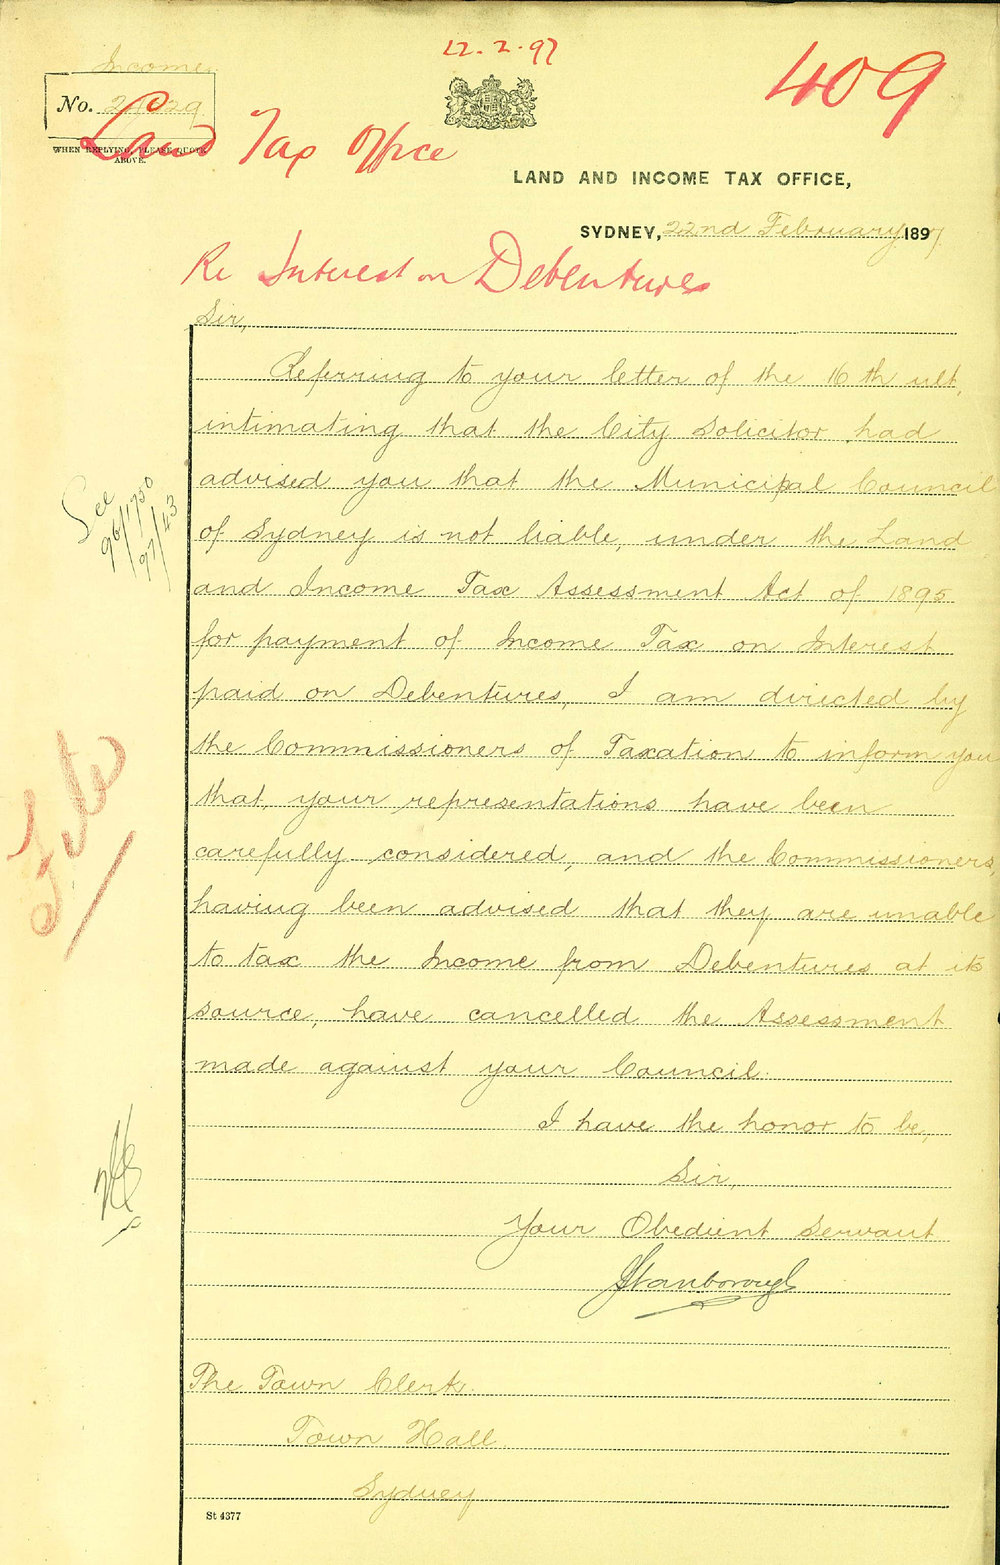 22.2.97
409
Income
No.
Land Tax Office
WHEN REPLYING, PLEASE QUOTE
ABOVE.
LAND AND INCOME TAX OFFICE,
SYDNEY, 22nd February 1897
Re Interest on Debentures
Sir,
Referring to your letter of the 16th ult.
intimating that the City Solicitor had
advised you that the Municipal Council
of Sydney is not liable, under the Land
and Income Tax Assessment Act of 1895
for payment of Income Tax on Interest
paid on Debentures, I am directed by
the Commissioners of Taxation to inform you
that your representations have been
carefully considered, and the Commissioners,
having been advised that they are unable
to tax the Income from Debentures at its
source, have cancelled the Assessment
made against your Council.
I have the honor to be,
Sir,
Your Obedient Servant
The Town Clerk
Town Hall
Sydney
See
96/1750
97/43
St 4377